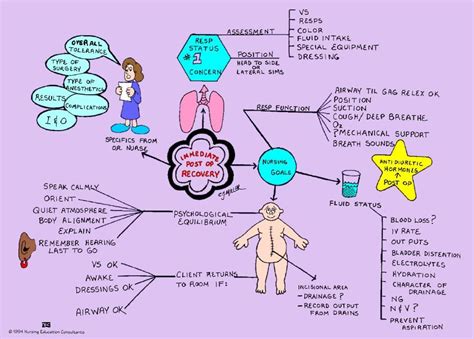 OVERALL
TOLERANCE
TYPE OF
SURGERY
TYPE OF
ANESTHETICS
RESULTS
COMPLICATIONS
I & O
SPECIFICS FROM
OR NURSE
RESP
STATUS
#1
CONCERN
ASSESSMENT
VS
RESPS
COLOR
FLUID INTAKE
SPECIAL EQUIPMENT
DRESSING
POSITION
HEAD TO SIDE
OR
LATERAL SIMS
IMMEDIATE
POST OP
RECOVERY
CJ MILLER
NURSING
GOALS
RESP FUNCTION
AIRWAY TIL GAG RELEX OK
POSITION
SUCTION
COUGH/ DEEP BREATHE
O2
?MECHANICAL SUPPORT
BREATH SOUNDS
ANTIDIURETIC
HORMONES
POST OP
FLUID STATUS
BLOOD LOSS?
IV RATE
OUT PUTS
BLADDER DISTENTION
ELECTROLYTES
HYDRATION
CHARACTER OF
DRAINAGE
NG
N & V?
PREVENT
ASPIRATION
PSYCHOLOGICAL
EQUILIBRIUM
SPEAK CALMLY
ORIENT
QUIET ATMOSPHERE
BODY ALIGNMENT
EXPLAIN
REMEMBER HEARING
LAST TO GO
CLIENT RETURNS
TO ROOM IF:
VS OK
AWAKE
DRESSINGS OK
AIRWAY OK
INCISIONAL AREA
- DRAINAGE?
- RECORD OUTPUT
FROM DRAINS
© 1994 Nursing Education Consultants